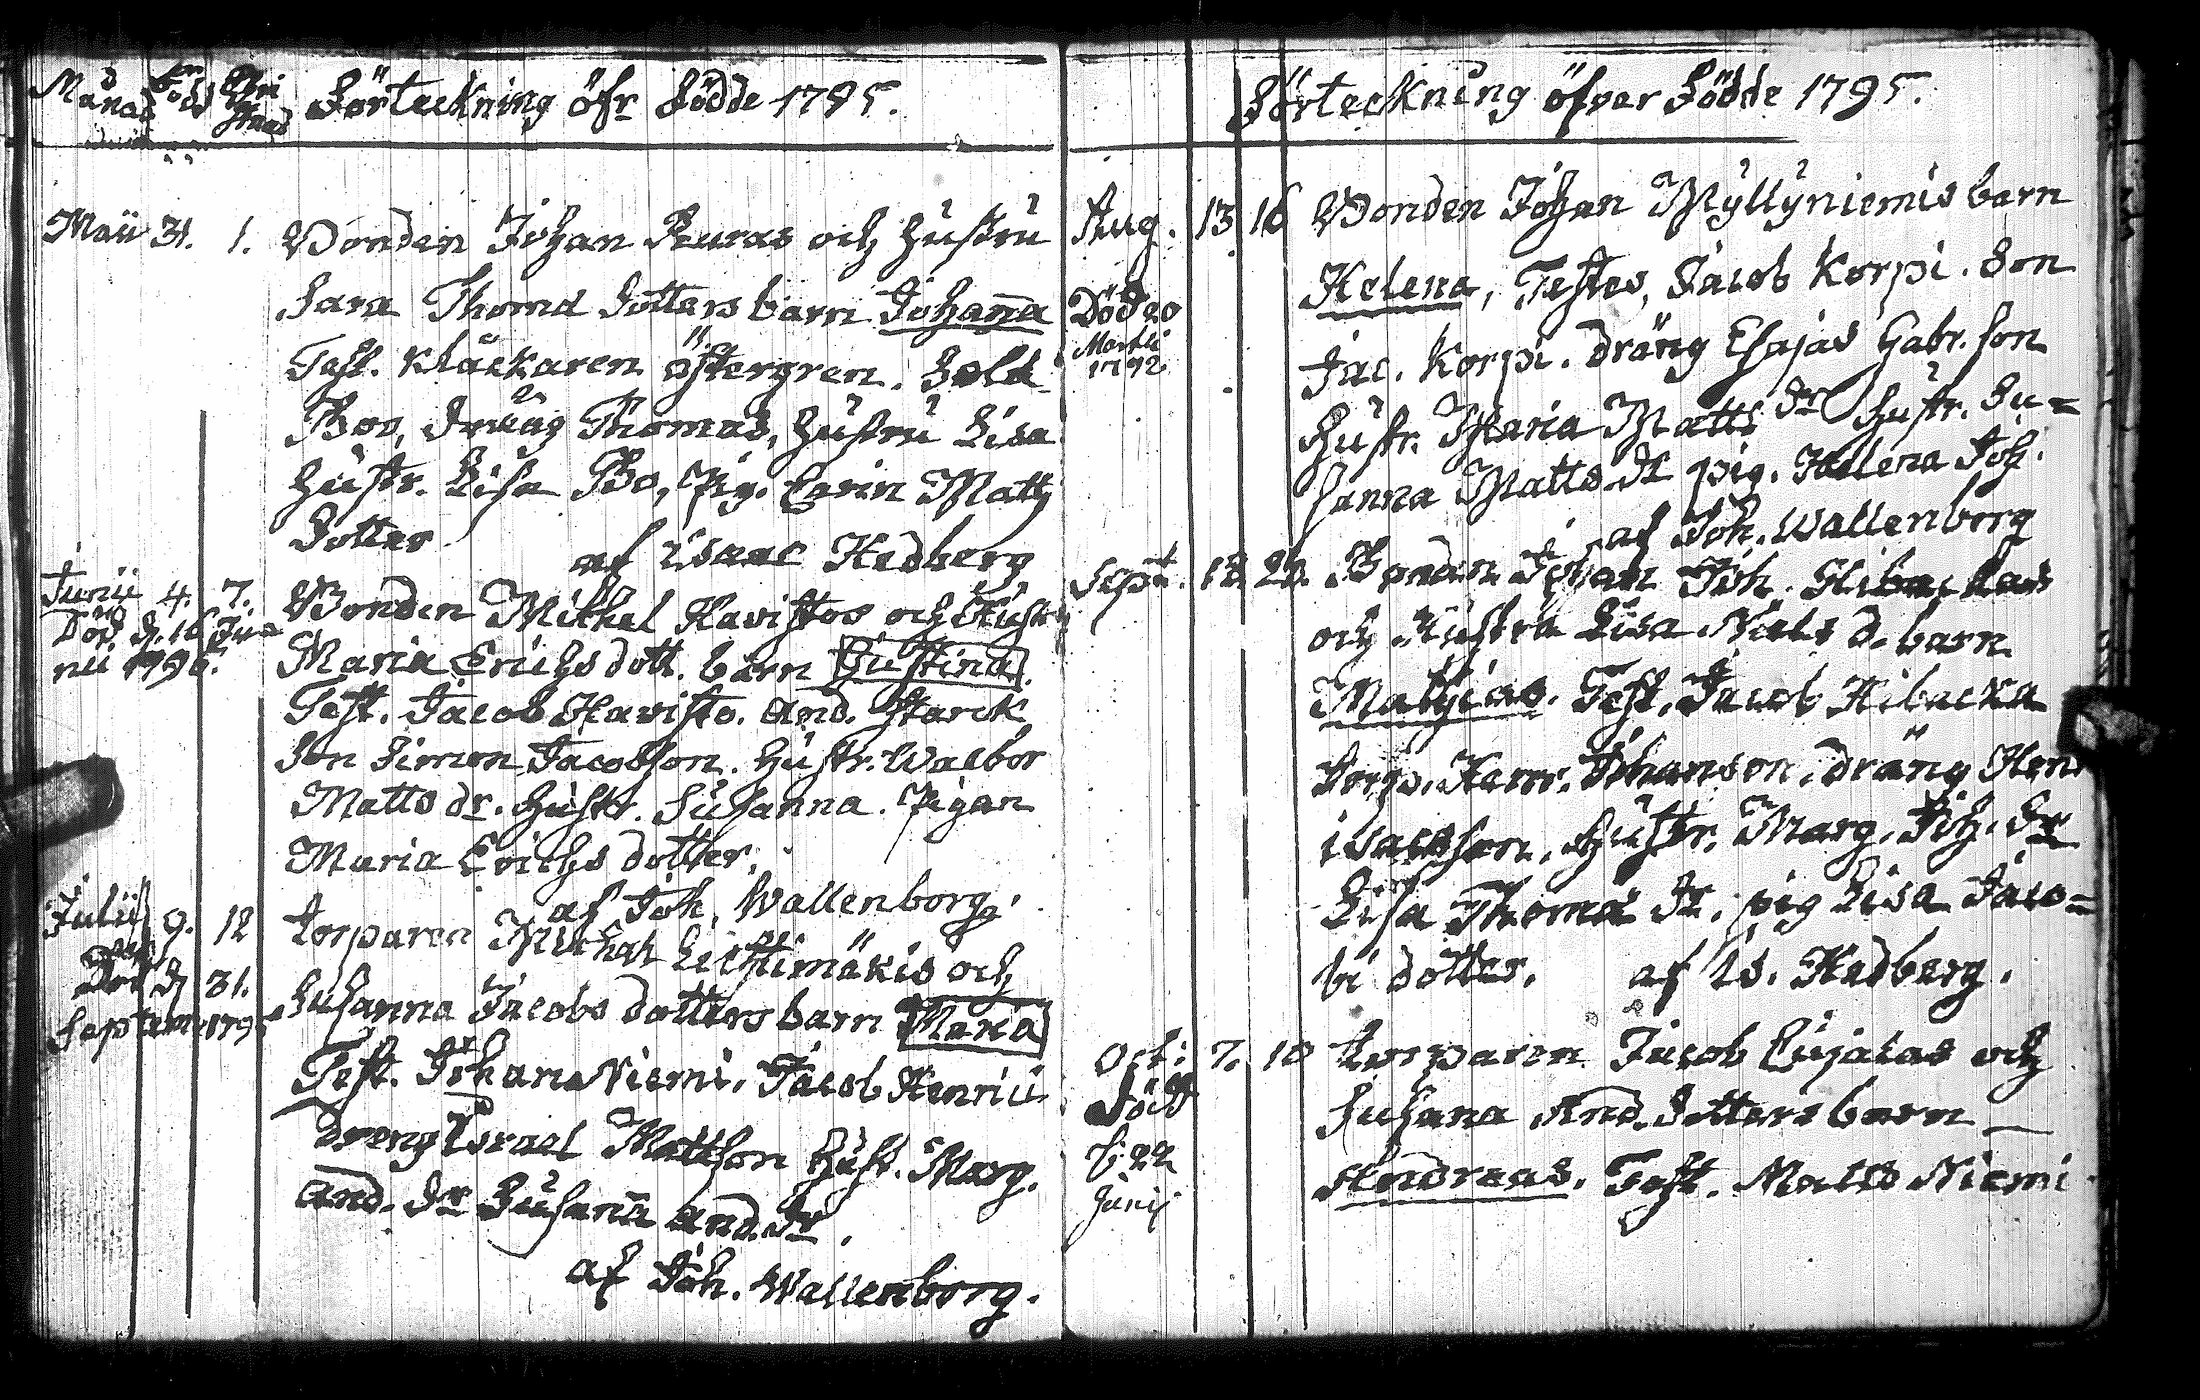 Månad Född Christnad Förteckning öfr Födde 1795.
Maii 31. 1. Bonden Johan Peuras och hustru
Sara Thoma dotters barn Johanna
Test. klåckaren östergren. Sold.
Bos, dräng Thomas, hustru Lisa
hustr. Lisa Bo, Pig. Carin Matts
dotter
af Isaac Hedberg
Junii 4. 7. Bonden Mikhel Havistos och hustr
Död d. 16 Ju=
nii 1796.
Maria Erichs dott. barn Justina.
Test. Jacob Havisto. And. Starck
Son Simon Jacobson. hustr. Walbor
Matts dr. hustr. Susanna. Pigan
Maria Erichs dotter.
af Joh. Wallenborg.
Julii 9. 12 torparen Michel Lehtimäkis och
Död d 31.
Septem 1795
Susanna Jacobs dotters barn Maria
Test. Johan Niemi, Jacob Henrici
dreng Israel Mattson hust. Marg.
And. dr Susana And. dr.
af Joh. Wallenborg.
Förteckning öfver Födde 1795.
Aug. 13 16 Bonden Johan Myllyniemis barn
Helena, Testes, Jacob Korpi. Son
Död 20
Martii
1792
Jac. Korpi. dräng Esajas Gabr. son
hustr. Maria Matts dr hustr. Su=
sanna Matts dr pig. Helena Joh.
af Joh. Wallenborg
Sept. 18. 20. Bonden Johan Joh. Hibackas
och Hustru Lisa Niels d. barn
Mathias. Test. Jacob Hibacka
torp. Herr. Johanson, dräng Hen
isackson, hustr. Marg. Joh. dr
Lisa Thomas dr, pig Lisa Jaco=
bi dotter. af Is. Hedberg.
Oct: 7. 10 torparen Jacob Cujalas och
Död
d. 22
Junij
Susana And. dotters barn
Andreas. Test. Matts Niemi